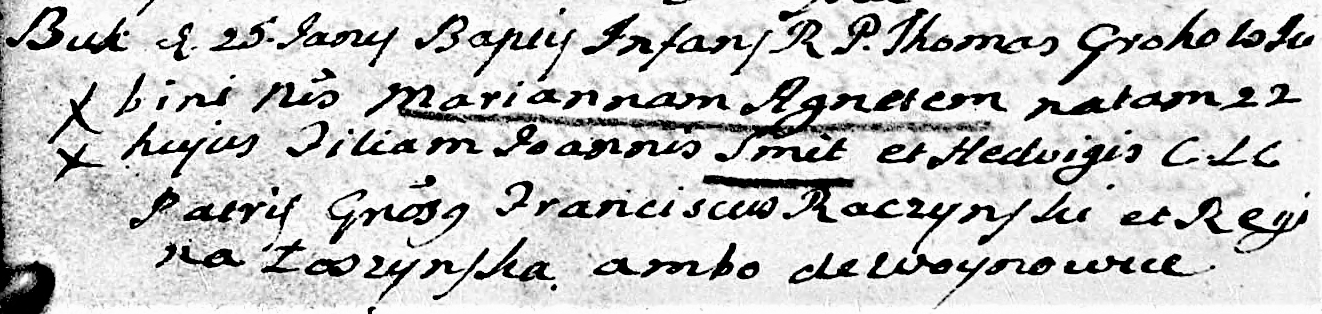 Buk d. 25 Januy Baptij Infans R. P. Thomas Groholski
bini nis Mariannam Agnetem natam 22
hujus Filiam Joannis Smit et Hedvigis C. L. C
Patris Gnosq Franciscus Raczynski et Regi
na Łoszynska. ambo de Woynowice